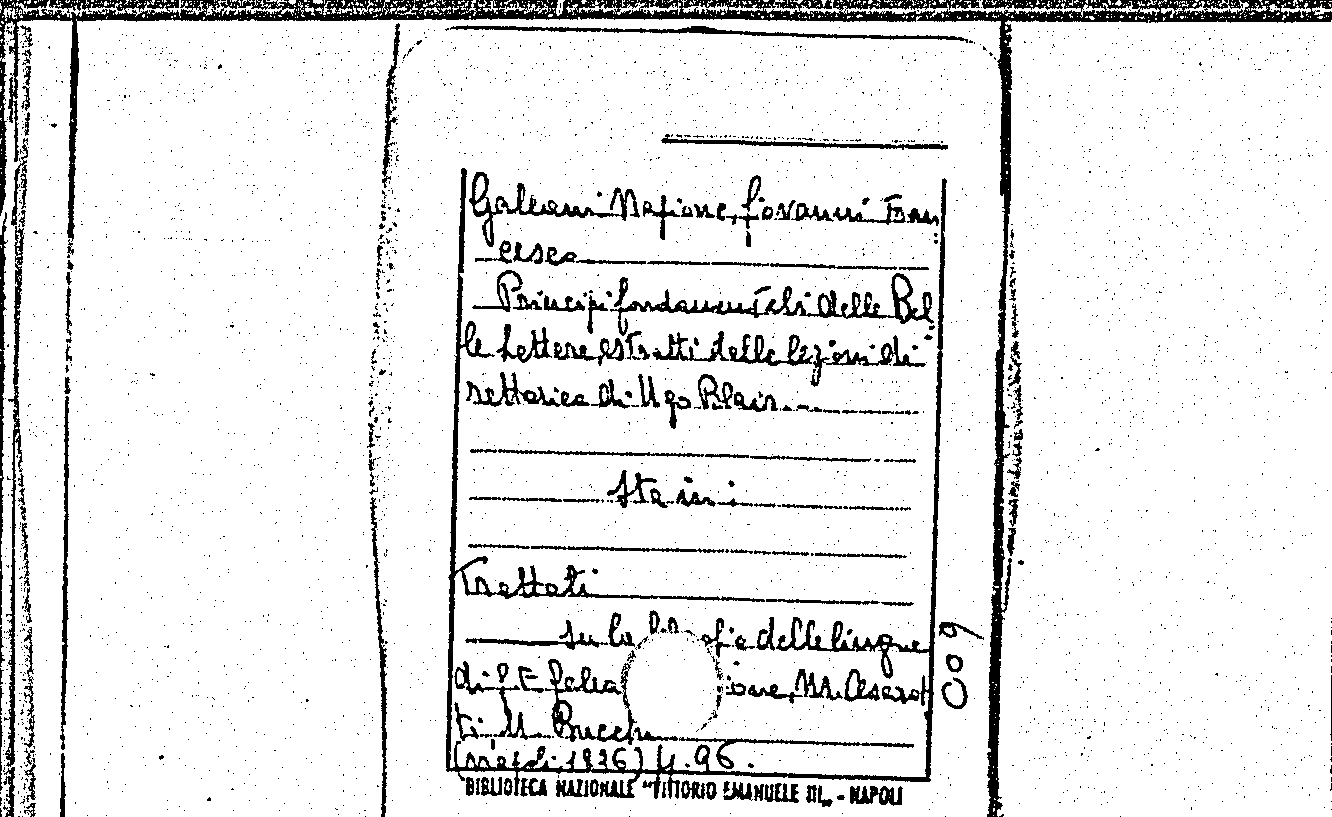 Galeani Napione, Giovanni Fran
cesco
Principi fondamentali delle Bel
le Lettere, estratti delle lezioni di
rettorica di Ugo Blair.
Sta in:
Trattati
su la filosofia delle lingue
di G. F. Galea ione, M. Cesarot
ti M.
(Napoli 1836) p. 96.
BIBLIOTECA NAZIONALE "VITTORIO EMANUELE III„ - NAPOLI
009